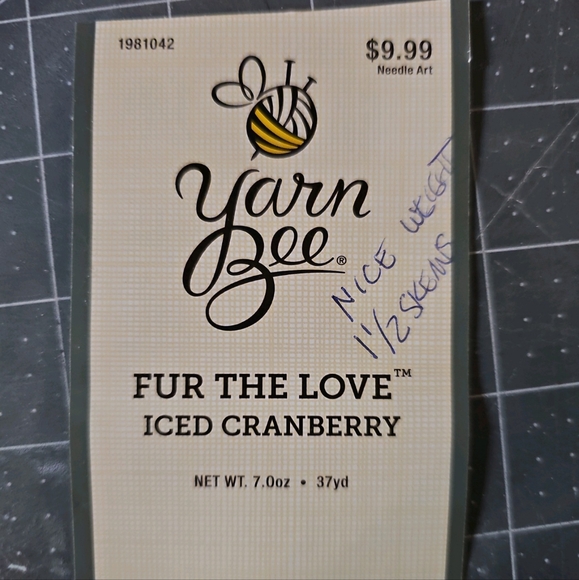 1981042
$9.99
Needle Art
Yarn
Bee®
NICE WEIGHT
1 1/2 SKEINS
FUR THE LOVE™
ICED CRANBERRY
NET WT. 7.0oz • 37yd